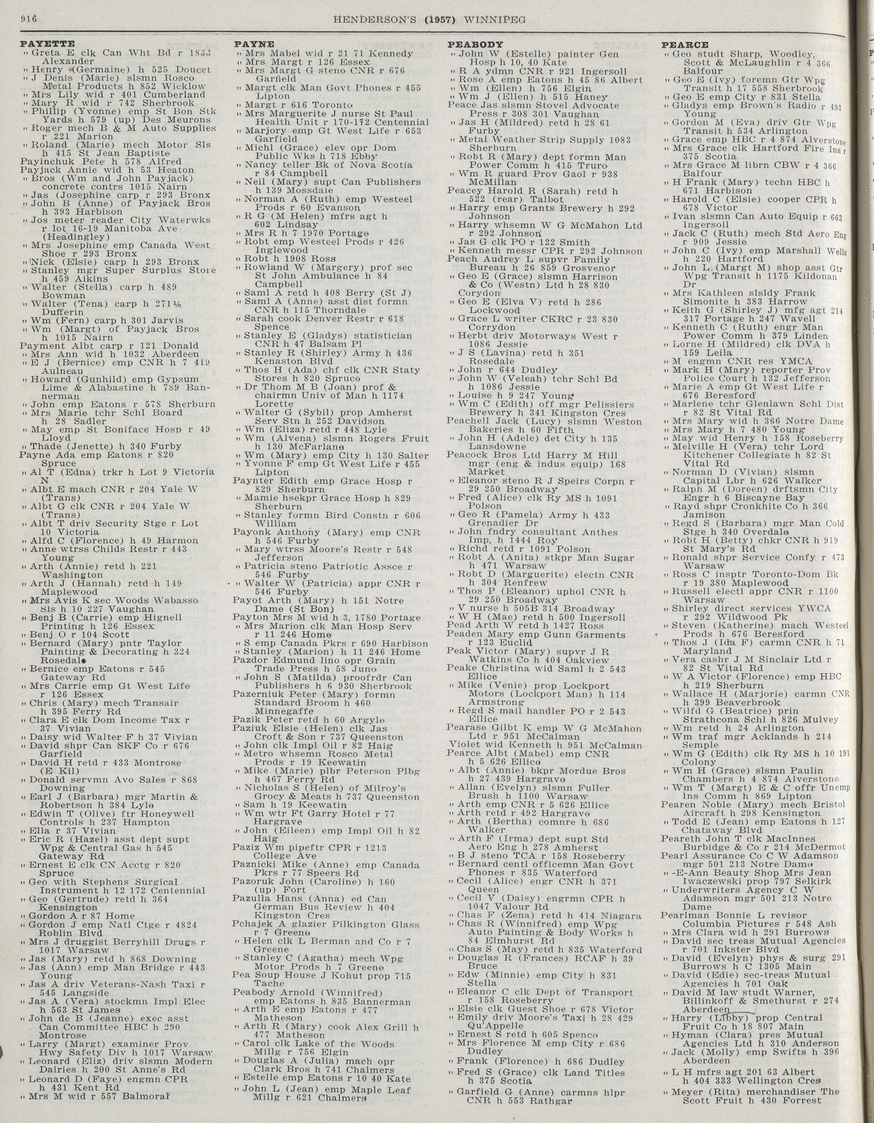 916
HENDERSON'S (1957) WINNIPEG
PAYETTE
" Greta E clk Can Wht Bd r 1833
Alexander
" Henry (Germaine) h 525 Doucet
" J Denis (Marie) slsmn Rosco
Metal Products h 852 Wicklow
" Mrs Lily wid r 401 Cumberland
" Mary R wid r 742 Sherbrook
" Phillip (Yvonne) emp St Bon Stk
Yards h 579 (up) Des Meurons
" Roger mech B & M Auto Supplies
r 221 Marion
" Roland (Marie) mech Motor Sls
h 415 St Jean Baptiste
Payinchuk Pete h 578 Alfred
Payjack Annie wid h 53 Heaton
" Bros (Wm and John Payjack)
concrete contrs 1015 Nairn
" Jas (Josephine carp r 293 Bronx
" John B (Anne) of Payjack Bros
h 393 Harbison
" Jos meter reader City Waterwks
r lot 16-19 Manitoba Ave
(Headingley)
" Mrs Josephine emp Canada West
Shoe r 293 Bronx
" Nick (Elsie) carp h 293 Bronx
" Stanley mgr Super Surplus Store
h 459 Aikins
" Walter (Stella) carp h 489
Bowman
" Walter (Tena) carp h 271½
Dufferin
" Wm (Fern) carp h 301 Jarvis
" Wm (Margt) of Payjack Bros
h 1015 Nairn
Payment Albt carp r 121 Donald
" Mrs Ann wid h 1032 Aberdeen
" E J (Bernice) emp CNR h 7 419
Aulneau
" Howard (Gunhild) emp Gypsum
Lime & Alabastine h 789 Ban-
nerman
" John emp Eatons r 578 Sherburn
" Mrs Marie tchr Schl Board
h 28 Sadler
" May emp St Boniface Hosp r 49
Lloyd
" Thade (Jenette) h 340 Furby
Payne Ada emp Eatons r 820
Spruce
" Al T (Edna) trkr h Lot 9 Victoria
N
" Albt E mach CNR r 204 Yale W
(Trans)
" Albt G clk CNR r 204 Yale W
(Trans)
" Albt T driv Security Stge r Lot
10 Victoria
" Alfd C (Florence) h 49 Harmon
" Anne wtrss Childs Restr r 443
Young
" Arth (Annie) retd h 221
Washington
" Arth J (Hannah) retd h 149
Maplewood
" Mrs Avis K sec Woods Wabasso
Sls h 10 227 Vaughan
" Benj B (Carrie) emp Hignell
Printing h 126 Essex
" Benj O r 104 Scott
" Bernard (Mary) pntr Taylor
Painting & Decorating h 324
Rosedale
" Bernice emp Eatons r 545
Gateway Rd
" Mrs Carrie emp Gt West Life
r 126 Essex
" Chris (Mary) mech Transair
h 395 Ferry Rd
" Clara E clk Dom Income Tax r
37 Vivian
" Daisy wid Walter F h 37 Vivian
" David shpr Can SKF Co r 676
Garfield
" David H retd r 433 Montrose
(E Kil)
" Donald servmn Avo Sales r 868
Downing
" Earl J (Barbara) mgr Martin &
Robertson h 384 Lyle
" Edwin T (Olive) ftr Honeywell
Controls h 237 Hampton
" Ella r 37 Vivian
" Eric R (Hazel) asst dept supt
Wpg & Central Gas h 545
Gateway Rd
" Ernest E clk CN Acctg r 820
Spruce
" Geo with Stephens Surgical
Instrument h 12 172 Centennial
" Geo (Gertrude) retd h 364
Kensington
" Gordon A r 87 Home
" Gordon J emp Natl Ctge r 4824
Roblin Blvd
" Mrs J druggist Berryhill Drugs r
1017 Warsaw
" Jas (Mary) retd h 868 Downing
" Jas (Ann) emp Man Bridge r 443
Young
" Jas A driv Veterans-Nash Taxi r
545 Langside
" Jas A (Vera) stockmn Impl Elec
h 563 St James
" John de B (Jeanne) exec asst
Can Committee HBC h 290
Montrose
" Larry (Margt) examiner Prov
Hwy Safety Div h 1017 Warsaw
" Leonard (Eliz) driv slsmn Modern
Dairies h 200 St Anne's Rd
" Leonard D (Faye) engmn CPR
h 431 Kent Rd
" Mrs M wid r 557 Balmoral
PAYNE
" Mrs Mabel wid r 21 71 Kennedy
" Mrs Margt r 126 Essex
" Mrs Margt G steno CNR r 676
Garfield
" Margt clk Man Govt Phones r 455
Lipton
" Margt r 616 Toronto
" Mrs Marguerite J nurse St Paul
Health Unit r 170-172 Centennial
" Marjory emp Gt West Life r 653
Garfield
" Michl (Grace) elev opr Dom
Public Wks h 718 Ebby
" Nancy teller Bk of Nova Scotia
r 84 Campbell
" Neil (Mary) supt Can Publishers
h 139 Mossdale
" Norman A (Ruth) emp Westeel
Prods r 60 Evanson
" R G (M Helen) mfrs agt h
602 Lindsay
" Mrs R h 7 1970 Portage
" Robt emp Westeel Prods r 426
Inglewood
" Robt h 1908 Ross
" Rowland W (Margery) prof sec
St John Ambulance h 84
Campbell
" Saml A retd h 408 Berry (St J)
" Saml A (Anne) asst dist formn
CNR h 115 Thorndale
" Sarah cook Denver Restr r 618
Spence
" Stanley E (Gladys) statistician
CNR h 47 Balsam Pl
" Stanley R (Shirley) Army h 436
Kenaston Blvd
" Thos H (Ada) chf clk CNR Staty
Stores h 820 Spruce
" Dr Thom M B (Joan) prof &
chairmn Univ of Man h 1174
Lorette
" Walter G (Sybil) prop Amherst
Serv Stn h 252 Davidson
" Wm (Eliza) retd r 448 Lyle
" Wm (Alvena) slsmn Rogers Fruit
h 130 McFarlane
" Wm (Mary) emp City h 130 Salter
" Yvonne F emp Gt West Life r 455
Lipton
Paynter Edith emp Grace Hosp r
829 Sherburn
" Mamie hsekpr Grace Hosp h 829
Sherburn
" Stanley formn Bird Constn r 606
William
Payonk Anthony (Mary) emp CNR
h 546 Furby
" Mary wtrss Moore's Restr r 548
Jefferson
" Patricia steno Patriotic Asscc r
546 Furby
" Walter W (Patricia) appr CNR r
546 Furby
Payot Arth (Mary) h 151 Notre
Dame (St Bon)
Payton Mrs M wid h 3, 1780 Portage
" Mrs Marion clk Man Hosp Serv
r 11 246 Home
" S emp Canada Pkrs r 690 Harbison
" Stanley (Marion) h 11 246 Home
Pazdor Edmund lino opr Grain
Trade Press h 58 Juno
" John S (Matilda) proofrdr Can
Publishers h 6 930 Sherbrook
Pazerniuk Peter (Mary) formn
Standard Broom h 460
Minnegaffe
Pazik Peter retd h 60 Argyle
Paziuk Elsie (Helen) clk Jas
Croft & Son r 737 Queenston
" John clk Impl Oil r 82 Haig
" Metro whsemn Rosco Metal
Prods r 19 Keewatin
" Mike (Marie) plbr Peterson Plbg
h 467 Ferry Rd
" Nicholas S (Helen) of Milroy's
Grocy & Meats h 737 Queenston
" Sam h 19 Keewatin
" Wm wtr Ft Garry Hotel r 77
Hargrave
" John (Eileen) emp Impl Oil h 82
Haig
Paziz Wm pipeftr CPR r 1213
College Ave
Paznicki Mike (Anne) emp Canada
Pkrs r 77 Speers Rd
Pazoruk John (Caroline) h 160
(up) Fort
Pazulla Hans (Anna) ed Can
German Bus Review h 404
Kingston Cres
Pchajek A glazier Pilkington Glass
r 7 Greene
" Helen clk L Berman and Co r 7
Greene
" Stanley C (Agatha) mech Wpg
Motor Prods h 7 Greene
Pea Soup House J Kohut prop 715
Tache
Peabody Arnold (Winnifred)
emp Eatons h 835 Bannerman
" Arth E emp Eatons r 477
Matheson
" Arth R (Mary) cook Alex Grill h
477 Matheson
" Carol clk Lake of the Woods
Millg r 756 Elgin
" Douglas A (Julia) mach opr
Clark Bros h 741 Chalmers
" Estelle emp Eatons r 10 40 Kate
" John L (Jean) emp Maple Leaf
Millg r 621 Chalmers
PEABODY
" John W (Estelle) painter Gen
Hosp h 10, 40 Kate
" R A ydmn CNR r 921 Ingersoll
" Rose A emp Eatons h 45 86 Albert
" Wm (Ellen) h 756 Elgin
" Wm J (Ellen) h 515 Haney
Peace Jas slsmn Stovel Advocate
Press r 308 301 Vaughan
" Jas H (Mildred) retd h 28 61
Furby
" Metal Weather Strip Supply 1083
Sherburn
" Robt R (Mary) dept formn Man
Power Comm h 415 Truro
" Wm R guard Prov Gaol r 938
McMillan
Peacey Harold R (Sarah) retd h
522 (rear) Talbot
" Harry emp Grants Brewery h 292
Johnson
" Harry whsemn W G McMahon Ltd
r 292 Johnson
" Jas G clk PO r 122 Smith
" Kenneth messr CPR r 292 Johnson
Peach Audrey L supvr Family
Bureau h 26 859 Grosvenor
" Geo E (Grace) slsmn Harrison
& Co (Westn) Ltd h 28 830
Corydon
" Geo E (Elva V) retd h 286
Lockwood
" Grace L writer CKRC r 23 830
Corrydon
" Herbt driv Motorways West r
1086 Jessie
" J S (Lavina) retd h 351
Rosedale
" John r 644 Dudley
" John W (Veleah) tchr Schl Bd
h 1086 Jessie
" Louise h 9 247 Young
" Wm C (Edith) off mgr Pelissiers
Brewery h 341 Kingston Cres
Peachell Jack (Lucy) slsmn Weston
Bakeries h 60 Fifth
" John H (Adele) det City h 135
Lansdowne
Peacock Bros Ltd Harry M Hill
mgr (eng & indus equip) 168
Market
" Eleanor steno R J Speirs Corpn r
29 250 Broadway
" Fred (Alice) clk Ry MS h 1091
Polson
" Geo R (Pamela) Army h 433
Grenadier Dr
" John fndry consultant Anthes
Imp, h 1444 Roy
" Richd retd r 1091 Polson
" Robt A (Anita) stkpr Man Sugar
h 471 Warsaw
" Robt D (Marguerite) electn CNR
h 304 Renfrew
" Thos P (Eleanor) uphol CNR h
29 250 Broadway
" V nurse h 505B 314 Broadway
" W H (Mae) retd h 500 Ingersoll
Pead Arth W retd h 1427 Ross
Peaden Mary emp Gunn Garments
r 123 Euclid
Peak Victor (Mary) supvr J R
Watkins Co h 404 Oakview
Peake Christina wid Saml h 2 543
Ellice
" Mike (Venie) prop Lockport
Motors (Lockport Man) h 114
Armstrong
" Regd S mail handler PO r 2 543
Ellice
Pearase Gilbt K emp W G McMahon
Ltd r 951 McCalman
Violet wid Kenneth h 951 McCalman
Pearce Albt (Mabel) emp CNR
h 5 626 Ellice
" Albt (Annie) bkpr Mordue Bros
h 27 439 Hargrave
" Allan (Evelyn) slsmn Fuller
Brush h 1100 Warsaw
" Arth emp CNR r 5 626 Ellice
" Arth retd r 492 Hargrave
" Arth (Bertha) comnre h 686
Walker
" Arth F (Irma) dept supt Std
Aero Eng h 278 Amherst
" B J steno TCA r 158 Roseberry
" Bernard centl officemn Man Govt
Phones r 835 Waterford
" Cecil (Alice) engr CNR h 371
Queen
" Cecil V (Daisy) engrmn CPR h
1047 Valour Rd
" Chas F (Zena) retd h 414 Niagara
" Chas R (Winnifred) emp Wpg
Auto Painting & Body Works h
84 Elmhurst Rd
" Chas S (May) retd h 835 Waterford
" Douglas R (Frances) RCAF h 39
Bruce
" Edw (Minnie) emp City h 831
Stella
" Eleanor C clk Dept of Transport
r 158 Roseberry
" Elsie clk Guest Shoe r 678 Victor
" Emily driv Moore's Taxi h 28 429
Qu'Appelle
" Ernest S retd h 605 Spence
" Mrs Florence M emp City r 686
Dudley
" Frank (Florence) h 686 Dudley
" Fred S (Grace) clk Land Titles
h 375 Scotia
" Garfield G (Anne) carmns hlpr
CNR h 553 Rathgar
PEARCE
" Geo studt Sharp, Woodley,
Scott & McLaughlin r 4 366
Balfour
" Geo E (Ivy) foremn Gtr Wpg
Transit h 17 558 Sherbrook
" Geo E emp City r 831 Stella
" Gladys emp Brown's Radio r 493
Young
" Gordon M (Eva) driv Gtr Wpg
Transit h 534 Arlington
" Grace emp HBC r 4 874 Alverstone
" Mrs Grace clk Hartford Fire Ins r
375 Scotia
" Mrs Grace M librn CBW r 4 366
Balfour
" H Frank (Mary) techn HBC h
671 Harbison
" Harold C (Elsie) cooper CPR h
678 Victor
" Ivan slsmn Can Auto Equip r 663
Ingersoll
" Jack C (Ruth) mech Std Aero Eng
r 909 Jessie
" John C (Ivy) emp Marshall Wells
h 220 Hartford
" John L (Margt M) shop asst Gtr
Wpg Transit h 1175 Kildonan
Dr
" Mrs Kathleen slsldy Frank
Simonite h 383 Harrow
" Keith G (Shirley J) mfg agt 214
317 Portage h 247 Wavell
" Kenneth C (Ruth) engr Man
Power Comm h 379 Linden
" Lorne H (Mildred) clk DVA h
159 Leila
" M engmn CNR res YMCA
" Mark H (Mary) reporter Prov
Police Court h 132 Jefferson
" Marie A emp Gt West Life r
676 Beresford
" Marlene tchr Glenlawn Schl Dist
r 82 St Vital Rd
" Mrs Mary wid h 366 Notre Dame
" Mrs Mary h 7 480 Young
" May wid Henry h 158 Roseberry
" Melville H (Vera) tchr Lord
Kitchener Collegiate h 82 St
Vital Rd
" Norman D (Vivian) slsmn
Capital Lbr h 626 Walker
" Ralph M (Doreen) drftsmn City
Engr h 6 Biscayne Bay
" Rayd shpr Cronkhite Co h 366
Jamison
" Regd S (Barbara) mgr Man Cold
Stge h 340 Overdale
" Robt H (Betty) chkr CNR h 919
St Mary's Rd
" Ronald shpr Service Confy r 473
Warsaw
" Ross C insptr Toronto-Dom Bk
r 19 380 Maplewood
" Russell electl appr CNR r 1100
Warsaw
" Shirley direct services YWCA
r 292 Wildwood Pk
" Steven (Katherine) mach Westeel
Prods h 676 Beresford
" Thos J (Ida F) carmn CNR h 71
Maryland
" Vera cashr J M Sinclair Ltd r
82 St Vital Rd
" W A Victor (Florence) emp HBC
h 219 Sherburn
" Wallace H (Marjorie) carmn CNR
h 399 Beaverbrook
" Wilfd G (Beatrice) prin
Strathcona Schl h 826 Mulvey
" Wm retd h 24 Arlington
" Wm traf mgr Acklands h 214
Semple
" Wm G (Edith) clk Ry MS h 10 191
Colony
" Wm H (Grace) slsmn Paulin
Chambers h 4 874 Alverstone
" Wm T (Margt) E & C offr Unemp
Ins Comm h 869 Lipton
Pearen Noble (Mary) mech Bristol
Aircraft h 298 Kensington
" Todd E (Jean) emp Eatons h 127
Chataway Blvd
Peareth John T clk MacInnes
Burbidge & Co r 214 McDermot
Pearl Assurance Co C W Adamson
mgr 501 213 Notre Dame
" -E-Ann Beauty Shop Mrs Jean
Iwaczewski prop 797 Selkirk
" Underwriters Agency C W
Adamson mgr 501 213 Notre
Dame
Pearlman Bonnie L revisor
Columbia Pictures r 548 Ash
" Mrs Clara wid h 291 Burrows
" David sec treas Mutual Agencies
r 701 Inkster Blvd
" David (Evelyn) phys & surg 291
Burrows h C 1305 Main
" David (Edie) sec-treas Mutual
Agencies h 701 Oak
" David M law studt Warner,
Billinkoff & Smethurst r 274
Aberdeen
" Harry (Libby) prop Central
Fruit Co h 18 807 Main
" Hyman (Clara) pres Mutual
Agencies Ltd h 310 Anderson
" Jack (Molly) emp Swifts h 396
Aberdeen
" L H mfrs agt 201 63 Albert
h 404 333 Wellington Cres
" Meyer (Rita) merchandiser The
Scott Fruit h 430 Forrest